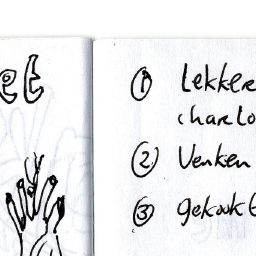 et
① Lekkere
charlo
② Venken
③ gekookt